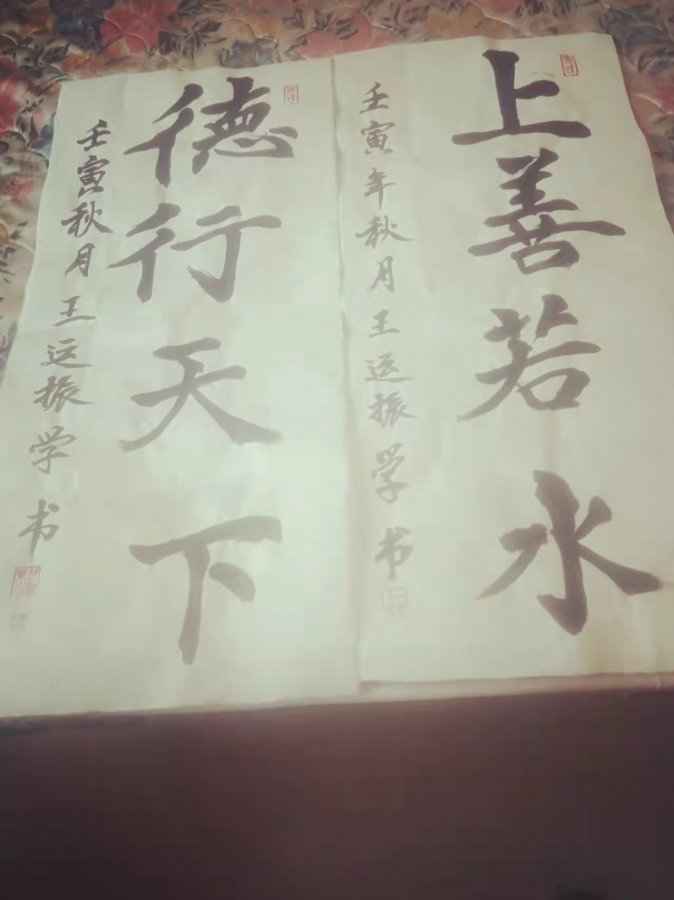 上善若水
壬寅年秋月王运振学书
德行天下
壬寅秋月王运振学书